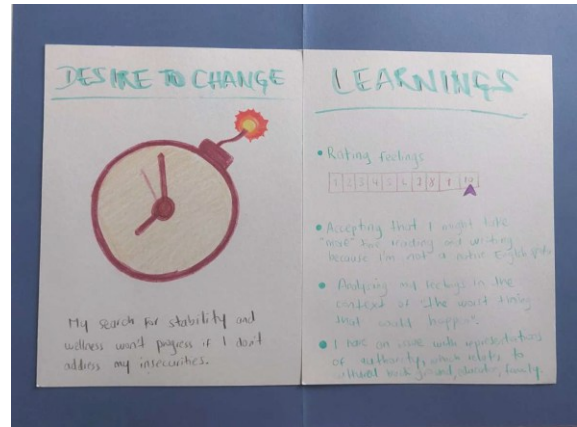 DESIRE TO CHANGE
My search for stability and
wellness won't progress if I don't
address my insecurities.
LEARNINGS
• Rating feelings
1 2 3 4 5 6 7 8 9 10
• Accepting that I might take
"more" time reading and writing
because I'm not a native English
• Analyzing my feelings in the
context of "the worst thing
that could happen".
• I have an issue with representations
of authority, which relates to
cultural background, educator, family.